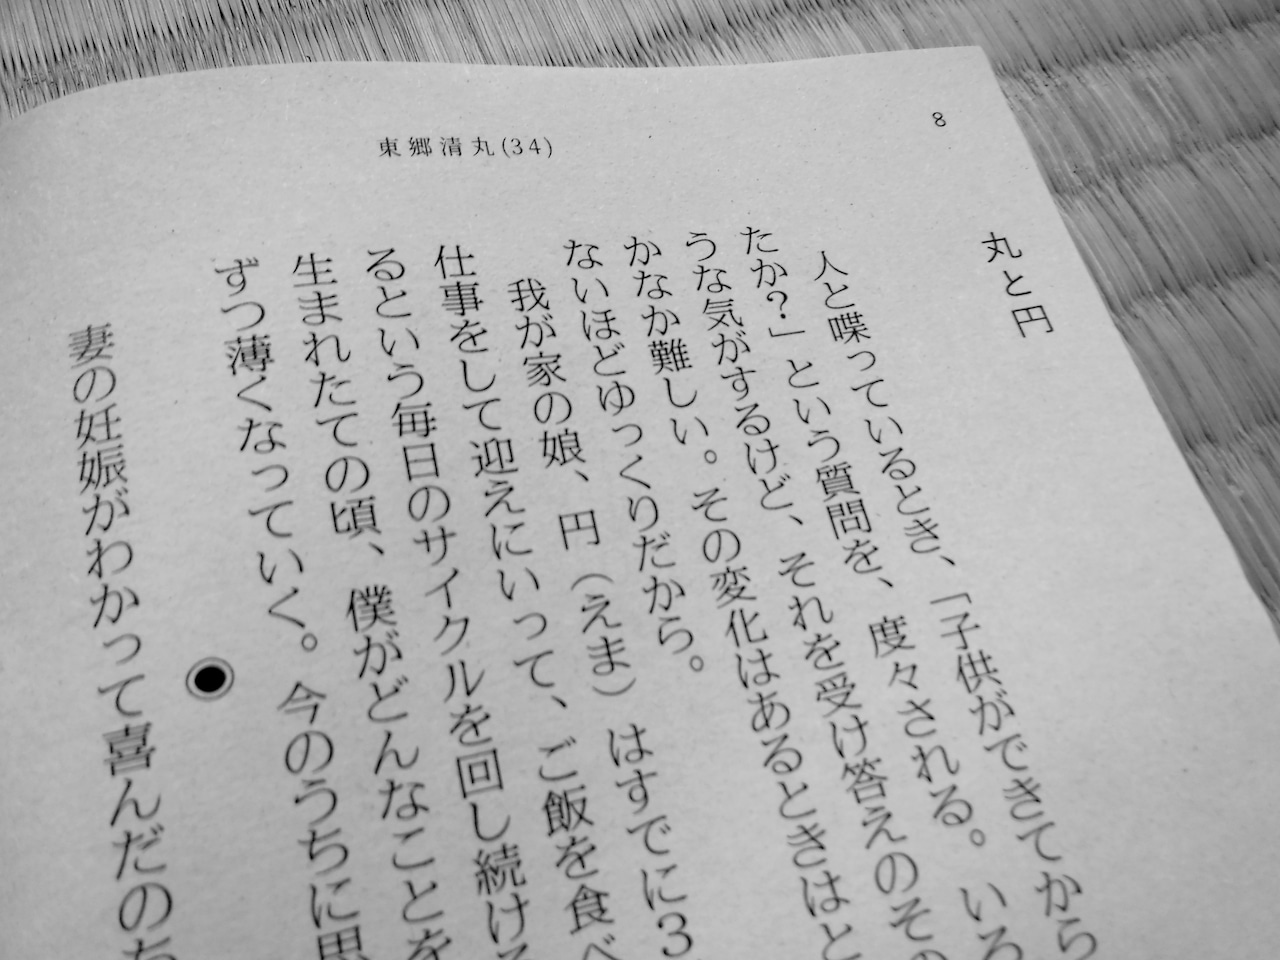 8
東郷清丸(34)
丸と円
人と喋っているとき、「子供ができてから
たか?」という質問を、度々される。いろ
うな気がするけど、それを受け答えのその
かなか難しい。その変化はあるときはと
ないほどゆっくりだから。
我が家の娘、円(えま)はすでに3
仕事をして迎えにいって、ご飯を食べ
るという毎日のサイクルを回し続ける
生まれたての頃、僕がどんなことを
ずつ薄くなっていく。今のうちに思
◉
妻の妊娠がわかって喜んだのも